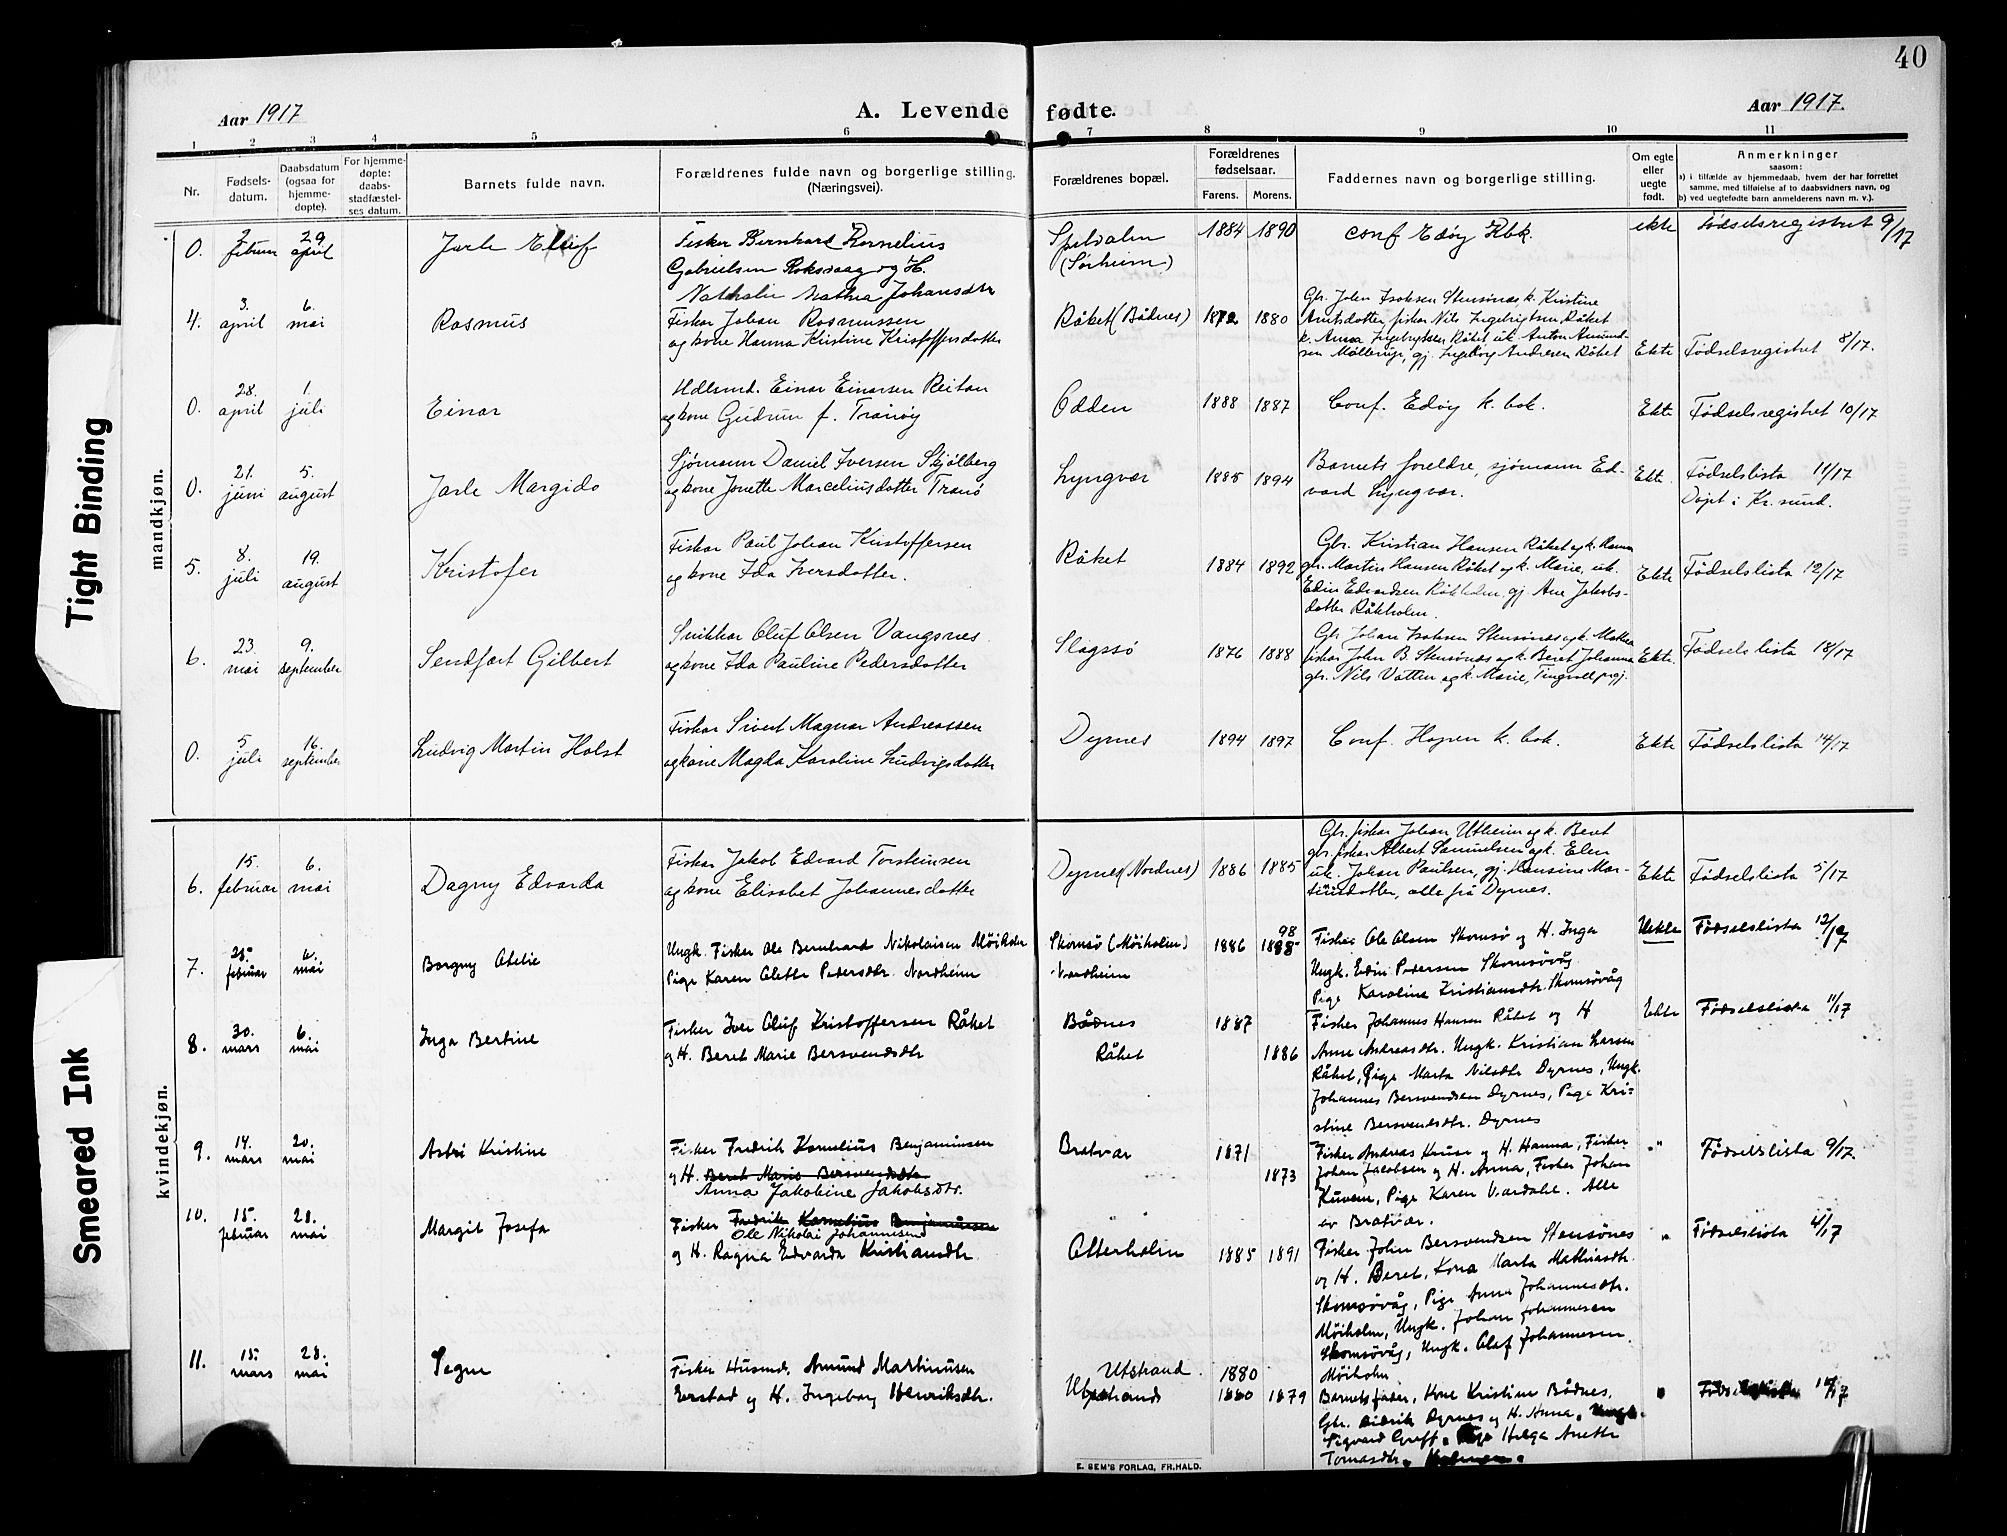 40
Aar 1917
A. Levende fødte.
Aar 1917.
1 2 3 4 5 6 7 8 9 10 11
Nr.
Fødsels-
datum.
Daabsdatum
(ogsaa for
hjemme-
døpte).
For hjemme-
døpte:
daabs-
stadfæstel-
ses datum.
Barnets fulde navn.
Forældrenes fulde navn og borgerlige stilling.
(Næringsvei).
Forældrenes bopæl.
Forældrenes
fødselsaar.
Farens. Morens.
Faddernes navn og borgerlige stilling.
Om egte
eller
uegte
født.
Anmerkninger
saasom:
a) i tilfælde av hjemmedaab, hvem der har forrettet
samme, med tilføielse af to daabsvidners navn, og
b) ved uegtefødte barn anmelderens navn m. v.).
Tight Binding
Smeared Ink
mandkjøn.
0.
2. februar
29. april
Jarle Eluf
Fisker Bernhard Kornelius
Gabrielsen Roksvaag og H.
Nathalie Mathea Johansdtr
Spildalen
(Sørheim)
1884 1890
conf Edøy Kbk.
ekte
Fødselsregistret 9/17
4.
3. april
6. mai
Rasmus
Fiskar Johan Rasmussen
og kone Hanna Kristine Kristoffersdotter
Råket (Bådnes)
1872 1880
Gbr. John Isaksen Stensønes, k. Kristine
Arntsdotter, fiskar Nils Ingebrigtsen Råket
k. Anna Ingebrigtsen Råket, uk. Anton Amund-
sen Møllerup, gj. Ingeborg Andresen Råket
Ekte
Fødselsregistret 8/17.
0.
28. april
1. juli
Einar
Hdlsmd. Einar Einarsen Reitan
og kone Gudrun f. Tranøy
Odden
1888 1887
Conf. Edøy k. bok.
Ekte
Fødselsregistret 10/17
0.
21. juni
5. august
Jarle Margido
Sjømann Daniel Iversen Skjølberg
og kone Jonette Marceliusdotter Tranø
Lyngvær
1885 1894
Barnets foreldre, sjømann Ed-
vard Lyngvær.
Ekte.
Fødselslista 11/17
Døpt i Kr.sund.
5.
8. juli
19. august
Kristofer
Fiskar Paul Johan Kristoffersen
og kone Ida Iversdotter.
Råket
1884 1892
Gbr. Kristian Hansen Råket og k. Hanna
gbr. Martin Hansen Råket og k. Marie, uk.
Edin Edvardsen Råkholm, gj. Ane Jakobs-
dotter Råkholm.
Ekte
Fødselslista 12/17
6.
23. mai
9. september
Sendfart Gilbert
Snikkar Oluf Olsen Vangsnes
og kone Ida Pauline Pedersdotter
Slagssø
1876 1888
Gbr. Johan Isaksen Stensønes og k. Mathea
fiskar John B. Stensønes og k. Beret Johanna
gbr. Nils Vatten og k. Marie, Tingvoll prgj.
Ekte.
Fødselslista 18/17
0.
5. juli
16. september
Ludvig Martin Holst
Fiskar Sivert Magnar Andreassen
og kone Magda Karoline Ludvigsdotter
Dyrnes
1894 1897
Conf. Hopen k. bok.
Ekte
Fødselslista 14/17
kvindekjøn.
6.
15. februar
6. mai
Dagny Edvarda
Fiskar Jakob Edvard Torsteinsen
og kone Elisabet Johannesdotter
Dyrnes (Nordnes)
1886 1885
Gbr. fiskar Johan Utheim og k. Beret
gbr. fiskar Albert Samuelsen og k. Elen
uk. Johan Paulsen, gj. Hansine Mar-
tinusdotter, alle frå Dyrnes.
Ekte
Fødselslista 5/17
7.
25. februar
6. mai
Borgny Otelie
Ungk. Fisker Ole Bernhard Nikolaisen Møiholm
Pige Karen Olette Pedersdtr. Nordheim
Skomsø (Møiholm)
Nordheim
1886 1888 98
Fisker Ole Olsen Skomsø og H. Inga
Ungk. Edin Pedersen Skomsøvåg
Pige Karoline Kristiansdtr. Skomsøvåg
Uekte
Fødselslista 12/17
8.
30. mars
6. mai
Inga Bertine
Fisker Iver Oluf Kristoffersen Råket
og H. Beret Marie Bersvendsdtr
Bådnes
Råket
1887
1886
Fisker Johannes Hansen Råket og H
Anne Andreasdtr. Ungk. Kristian Larsen
Råket, Pige Marta Nilsdtr Dyrnes, Ungk.
Johannes Bersvendsen Dyrnes, Pige Kri-
stine Bersvendsdtr. Dyrnes
Ekte
Fødselslista 11/17
9.
14. mars
20. mai
Astri Kristine
Fisker Fredrik Kornelius Benjaminsen
og H. Beret Marie Bersvendsdtr
Anna Jakobine Jakobsdtr.
Bratvær
1871
1873
Fisker Andreas Kruse og H. Hanna, Fisker
Johan Jacobsen og H. Anna, Fisker Johan
Kuven, Pige Karen Vardahl. Alle
av Bratvær.
"
Fødselslista 9/17.
10.
15. februar
28. mai
Margit Josefa
Fisker Fredrik Kornelius Benjaminsen
Ole Nikolai Johannesend
og H. Ragna Edvarda Kristiansdtr.
Otterholm
1885 1891
Fisker John Bersvendsen Stensønes
og H. Beret, Kona Marta Mathiasdtr.
Skomsøvåg, Pige Anna Johannesdtr.
Møiholm, Ungk. Johan Johannesen
Skomsøvåg, Ungk. Olaf Johannesen
Møiholm
"
Fødselslista 4/17
11.
15. mars
28. mai
Segne
Fisker Husmd. Amund Martinusen
Eerstad og H. Ingeborg Henriksdtr.
Utstrand
1880
1880 1879
Barnets fader, Kone Kristine Bådnes,
Gbr. Didrik Dyrnes og H. Anna, Ungk.
Sigvard Greff, Pige Helga Anette
Tomasdtr.
"
Fødselslista
E. SEM'S FORLAG, FR.HALD.